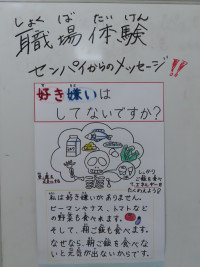 しょく ば たい けん
職場体験
センパイからのメッセージ!!
好き嫌いは
してないですか?
しっかり
ご飯を食べて
私は好き嫌いがありません。
ピーマンやナス、トマトなど
の野菜も食べれます。
そして、朝ご飯も食べます。
なぜなら、朝ご飯を食べない
と元気が出ないからです。